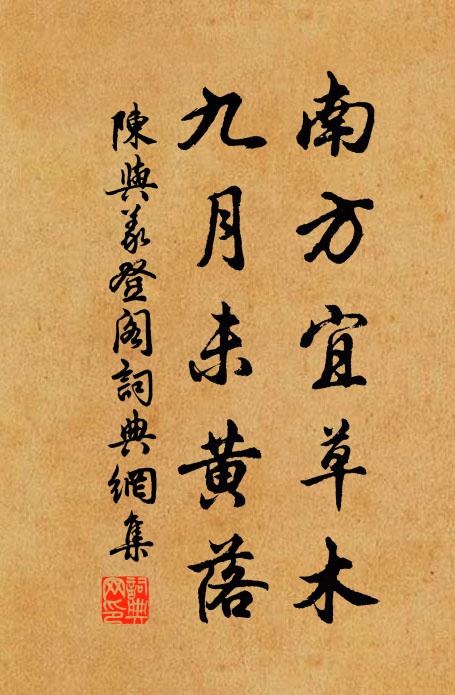 南方宜草木
九月未黄落
陳與義登閣詞典網集
詞典网印